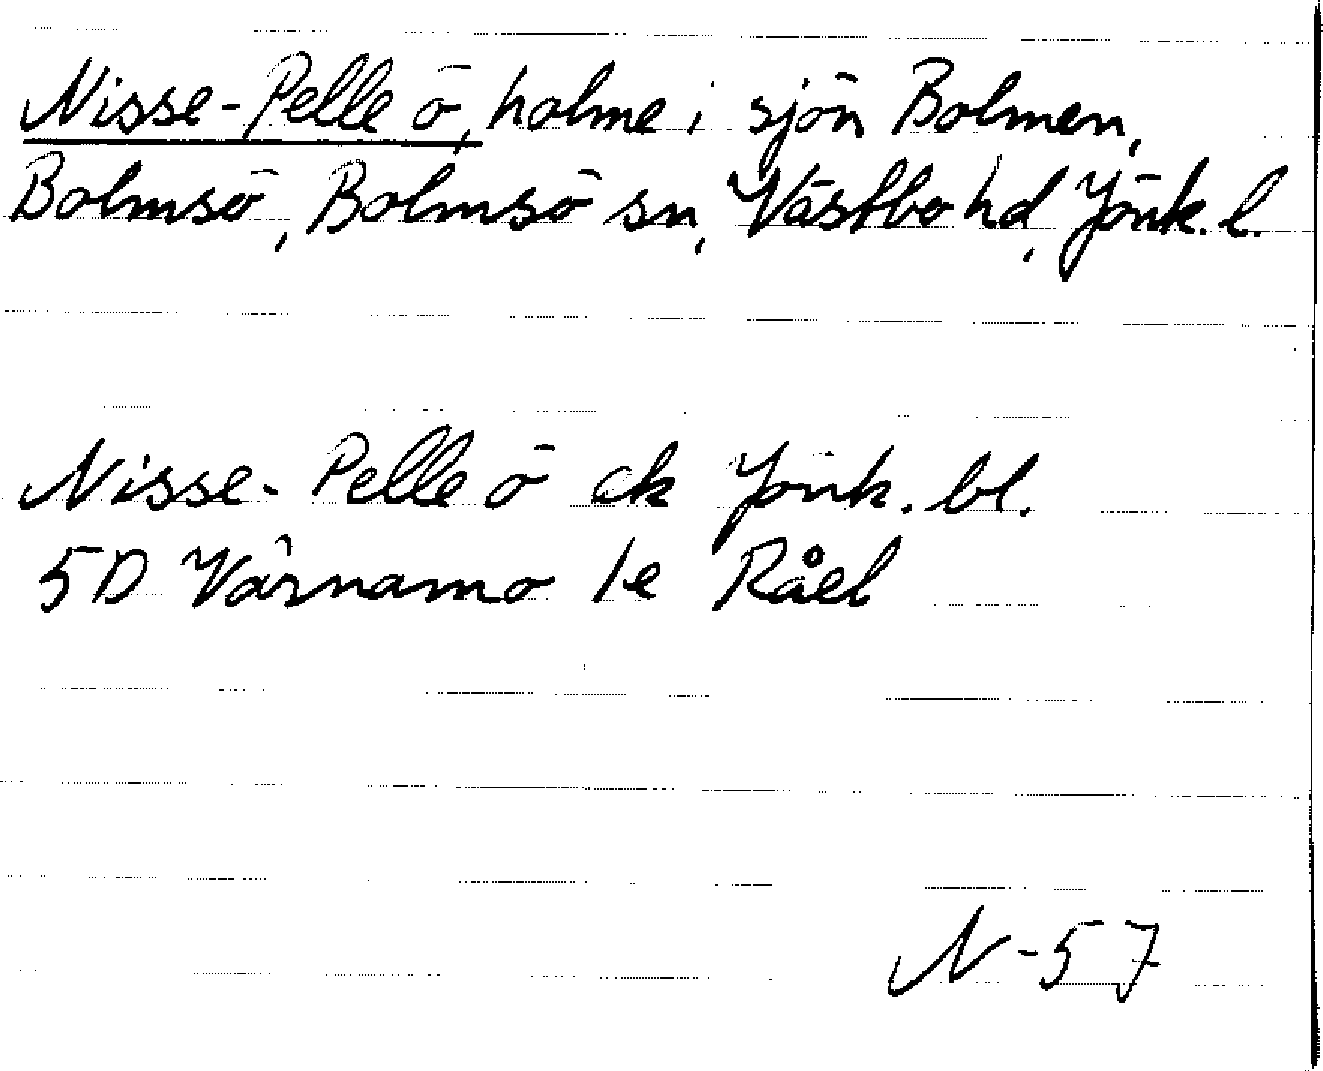 Nisse-Pelle ö, holme i sjön Bolmen,
Bolmsö, Bolmsö sn, Västbo hd, Jönk. l.
Nisse-Pelle ö ek Jönk. bl.
5D Värnamo 1e Råel
N-57